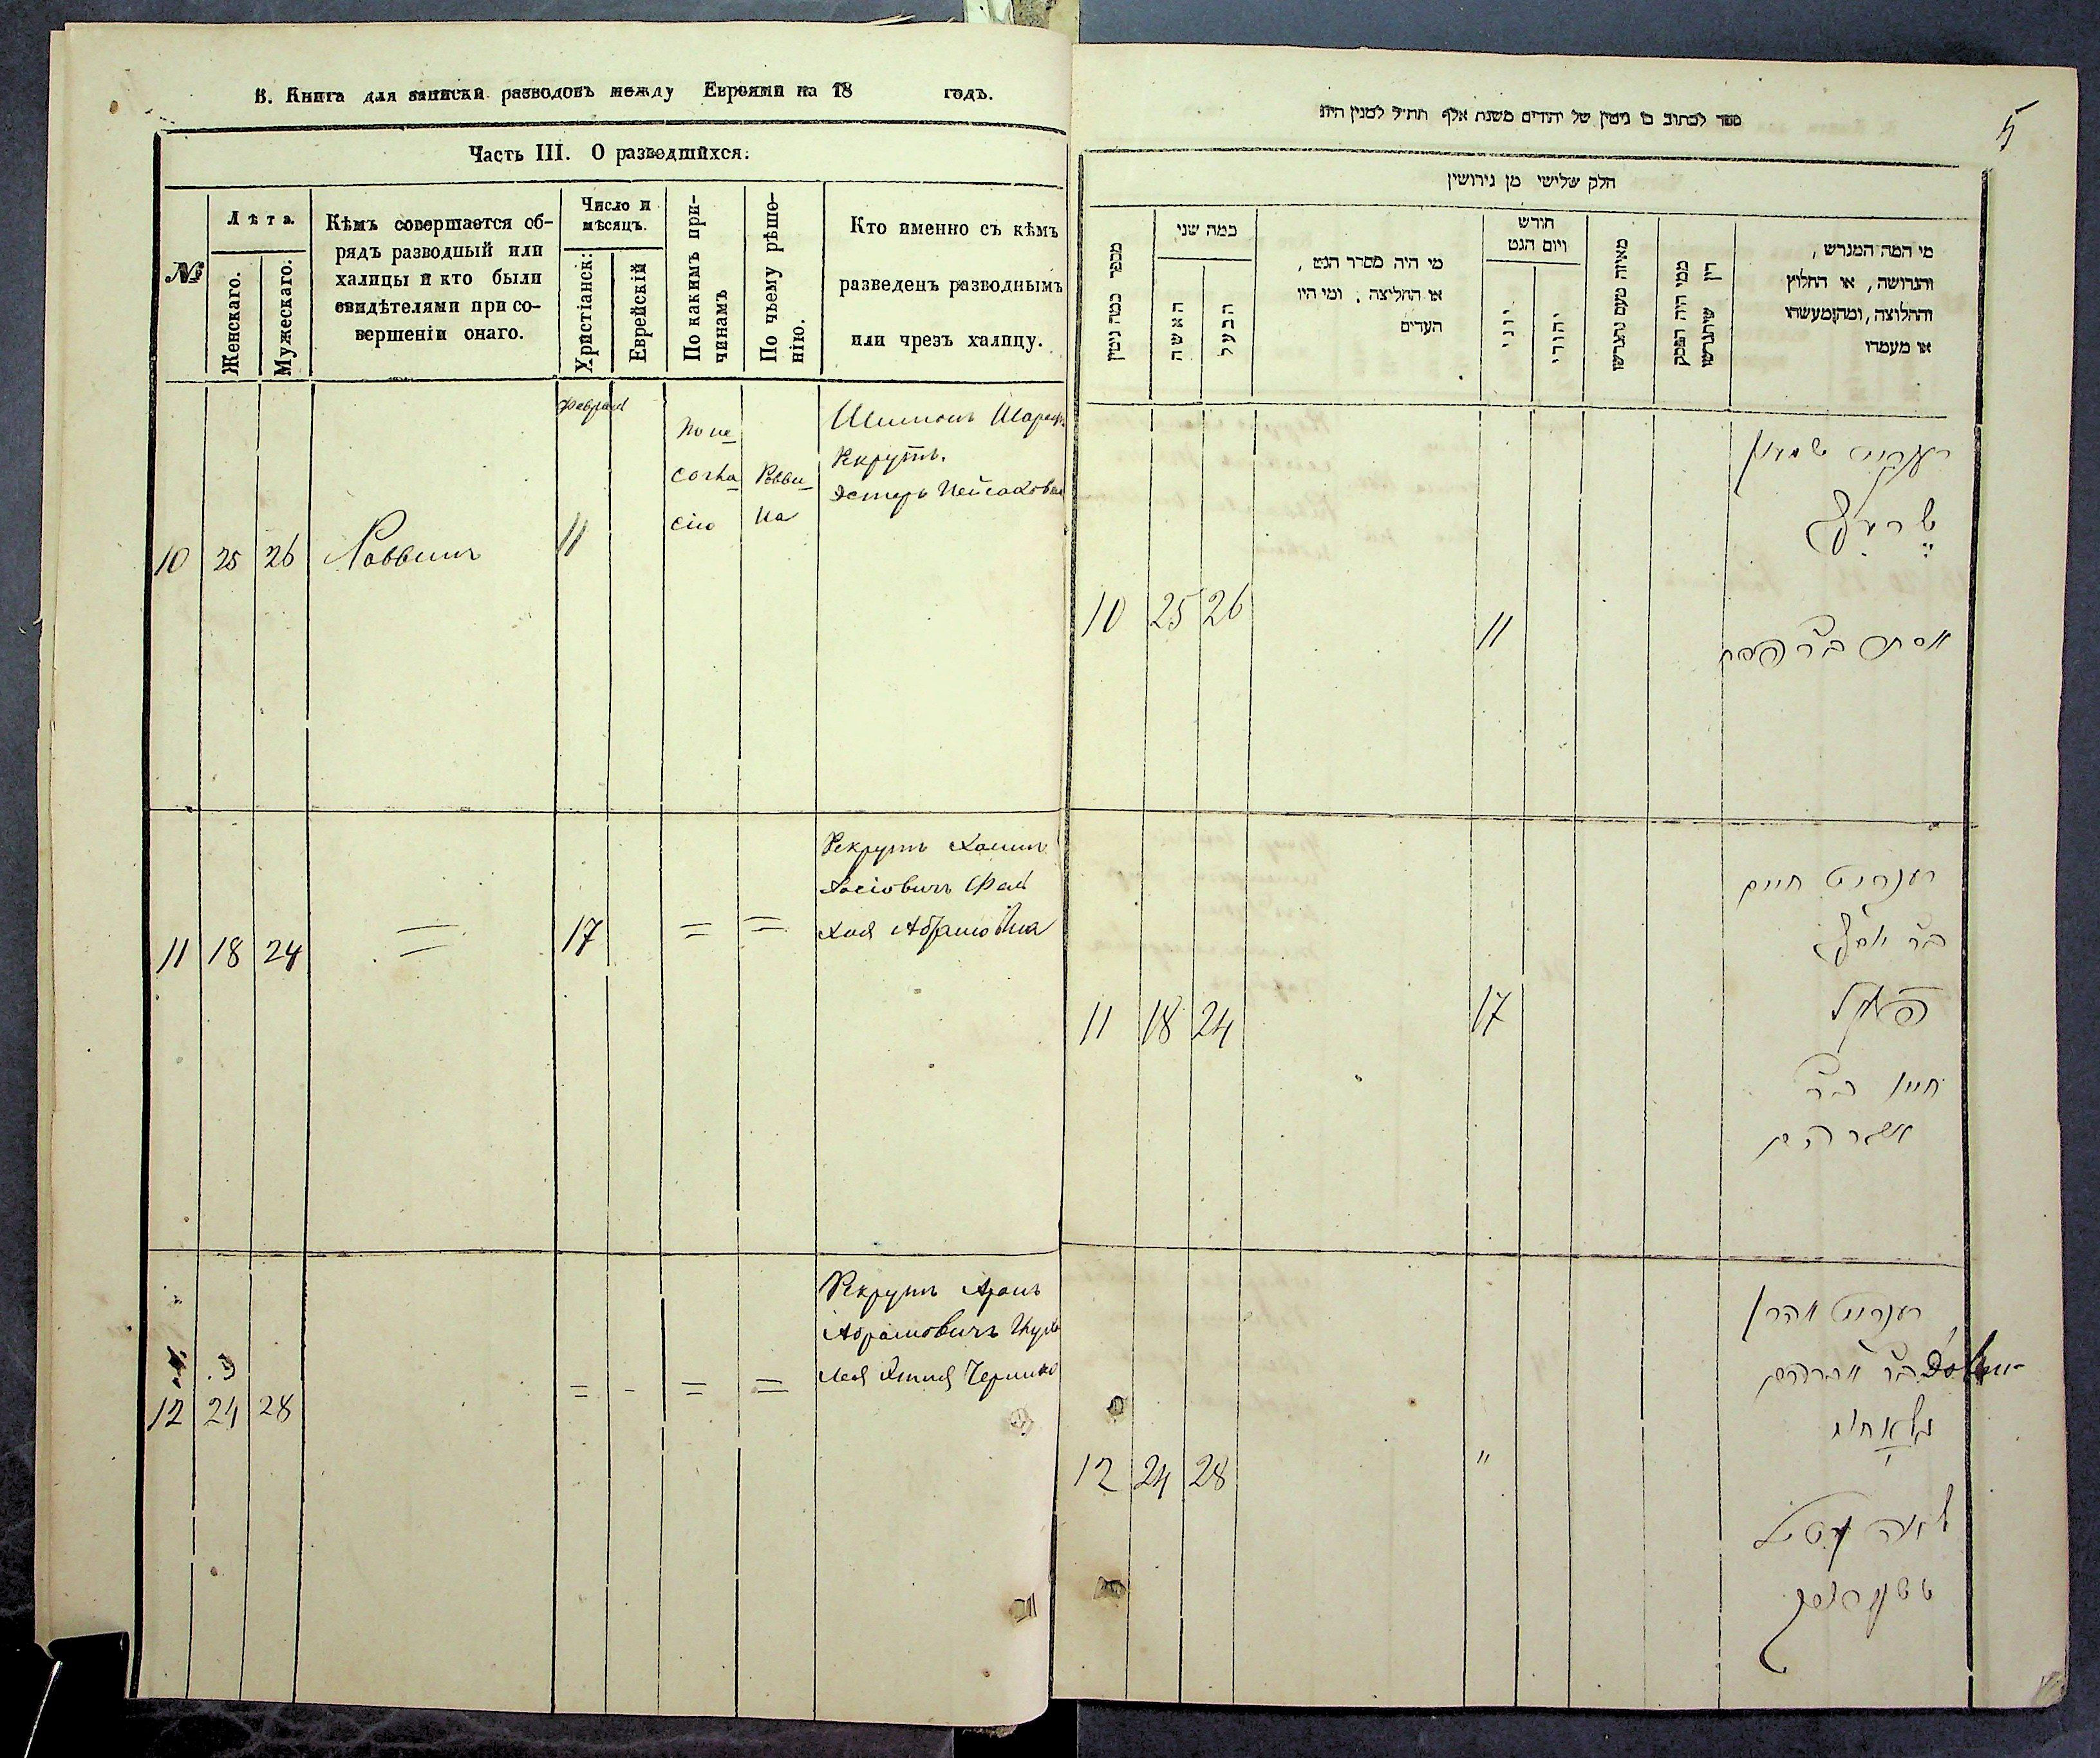 В. Книга для записки разводовъ между Евреями на 18 годъ.
Часть III. О разведшихся.
№
Лѣта.
Женскаго.
Мужескаго.
Кѣмъ совершается об-
рядъ разводный или
халицы и кто были
свидѣтелями при со-
вершеніи онаго.
Число и
мѣсяцъ.
Христіанск:
Еврейскій
По какимъ при-
чинамъ
По чьему рѣше-
нію.
Кто именно съ кѣмъ
разведенъ разводнымъ
или чрезъ халицу.
10 25 26 Раввинъ
Февраля
11
По не
согла
сію
Равви
на
Шимонъ
Рекрутъ.
Эстеръ Пейсаховна
11 18 24 = 17 = =
Рекрутъ Хаимъ
Хая Абрамовна
12 24 28 = - = =
Рекрутъ Аронъ
Абрамовичъ
Лея
ספר לכתוב בו גיטין של יהודים משנת אלף תת״ל למנין היוני
5
חלק שלישי מן גירושין
מספר כמה גיטין
כמה שני
האשה
הבעל
מי היה מסדר הגט,
או החליצה, ומי היו
העדים
חורש
ויום הגט
יוני
יהודי
מאיזה טעם נתגרשו
ממי היה הפסק
דין שיתגרשו
מי המה המגרש,
והגרושה, או החלוץ
והחלוצה, ומהנמעשהו
או מעמדו
10 25 26 11
רעקרוט שמעון
אסתר בר פסח
11 18 24 17
רעקרוט חיים
בר יוסף
חיי בר
אברהם
12 24 28 "
רעקרוט אהרן
בר אברהם
לאה